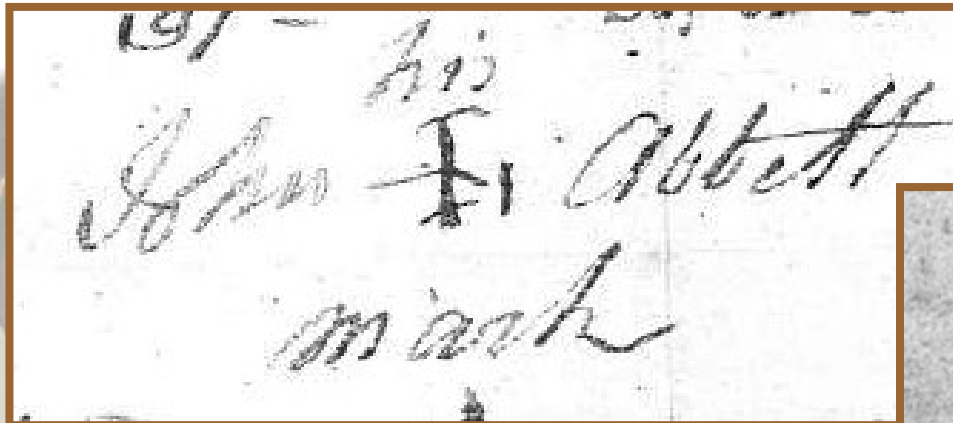 his
John Abbett
mark